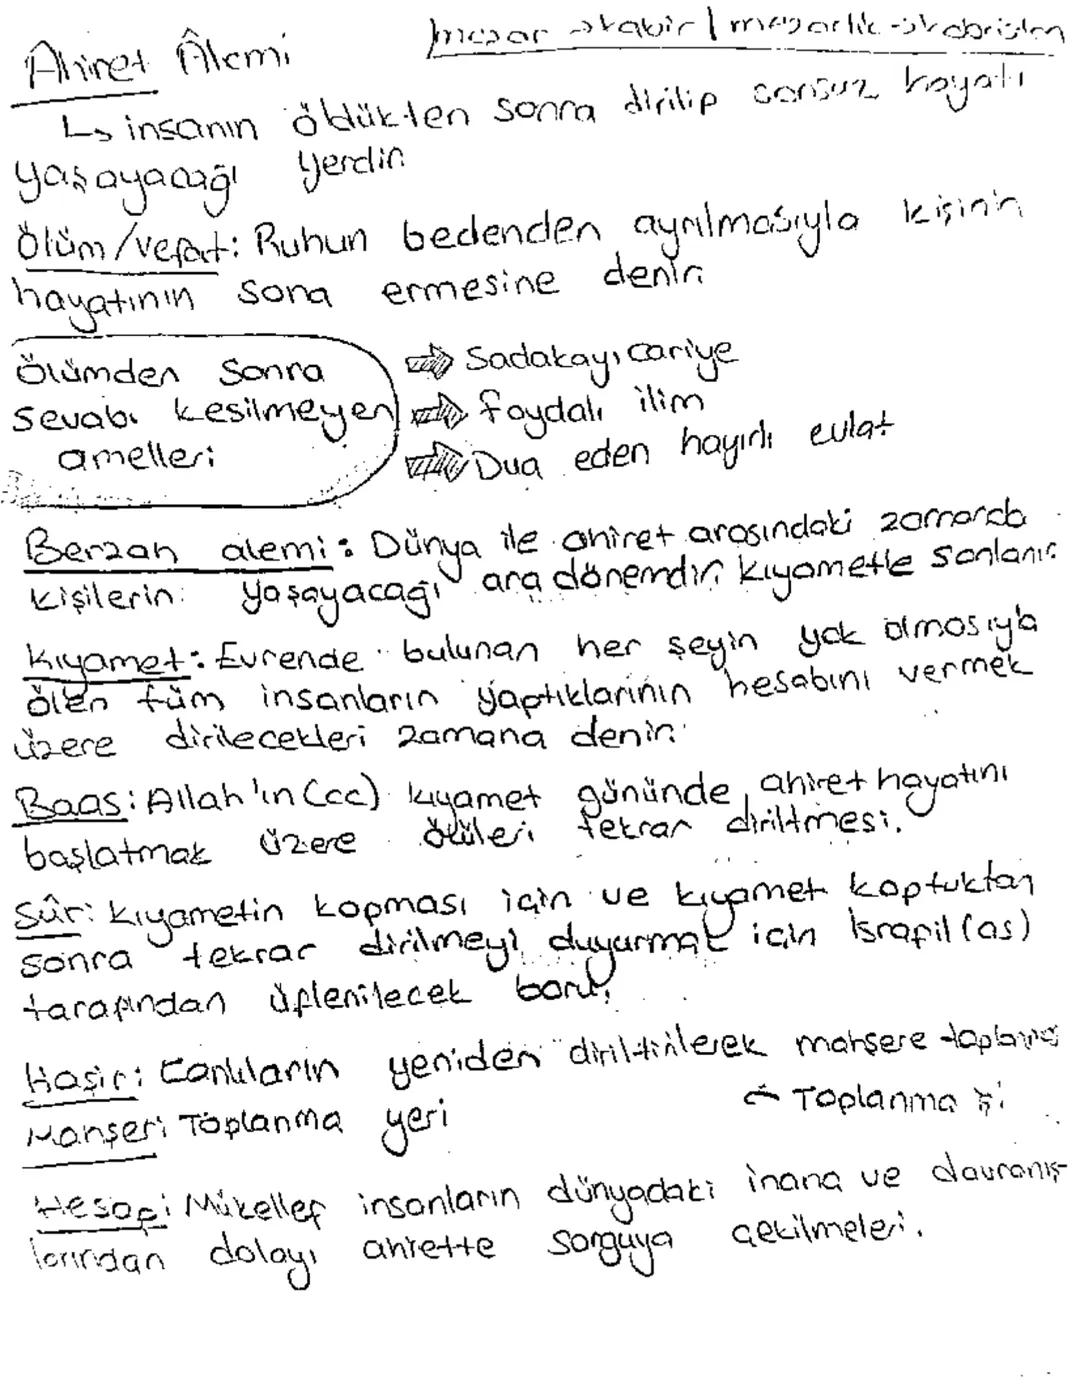 mezar → kabir | mezarlık → kabristan
Ahiret Âlemi
↳ insanın öldükten sonra dirilip sonsuz hayatı
yaşayacağı yerdir.
Ölüm/vefat: Ruhun bedenden ayrılmasıyla kişinin
hayatının sona ermesine denir.
Ölümden sonra
sevabı kesilmeyen
amelleri
⇒ Sadakayı cariye
⇒ faydalı ilim
⇒ Dua eden hayırlı evlat
Berzah alemi: Dünya ile ahiret arasındaki zamanda
kişilerin yaşayacağı ara dönemdir. Kıyametle sonlanır.
Kıyamet: Evrende bulunan her şeyin yok olmasıyla
ölen tüm insanların yaptıklarının hesabını vermek
üzere dirilecekleri zamana denir.
Baas: Allah'ın (cc) kıyamet gününde ahiret hayatını
başlatmak üzere ölüleri tekrar diriltmesi.
Sûr: Kıyametin kopması için ve kıyamet koptuktan
sonra tekrar dirilmeyi duyurmak için İsrafil (as)
tarafından üflenilecek boru.
Haşir: Canlıların yeniden diriltilerek mahşere
← Toplanma işi
Mahşer: Toplanma yeri
Hesap: Mükellef insanların dünyadaki inanç ve davranış-
larından dolayı ahrette sorguya çekilmeleri.